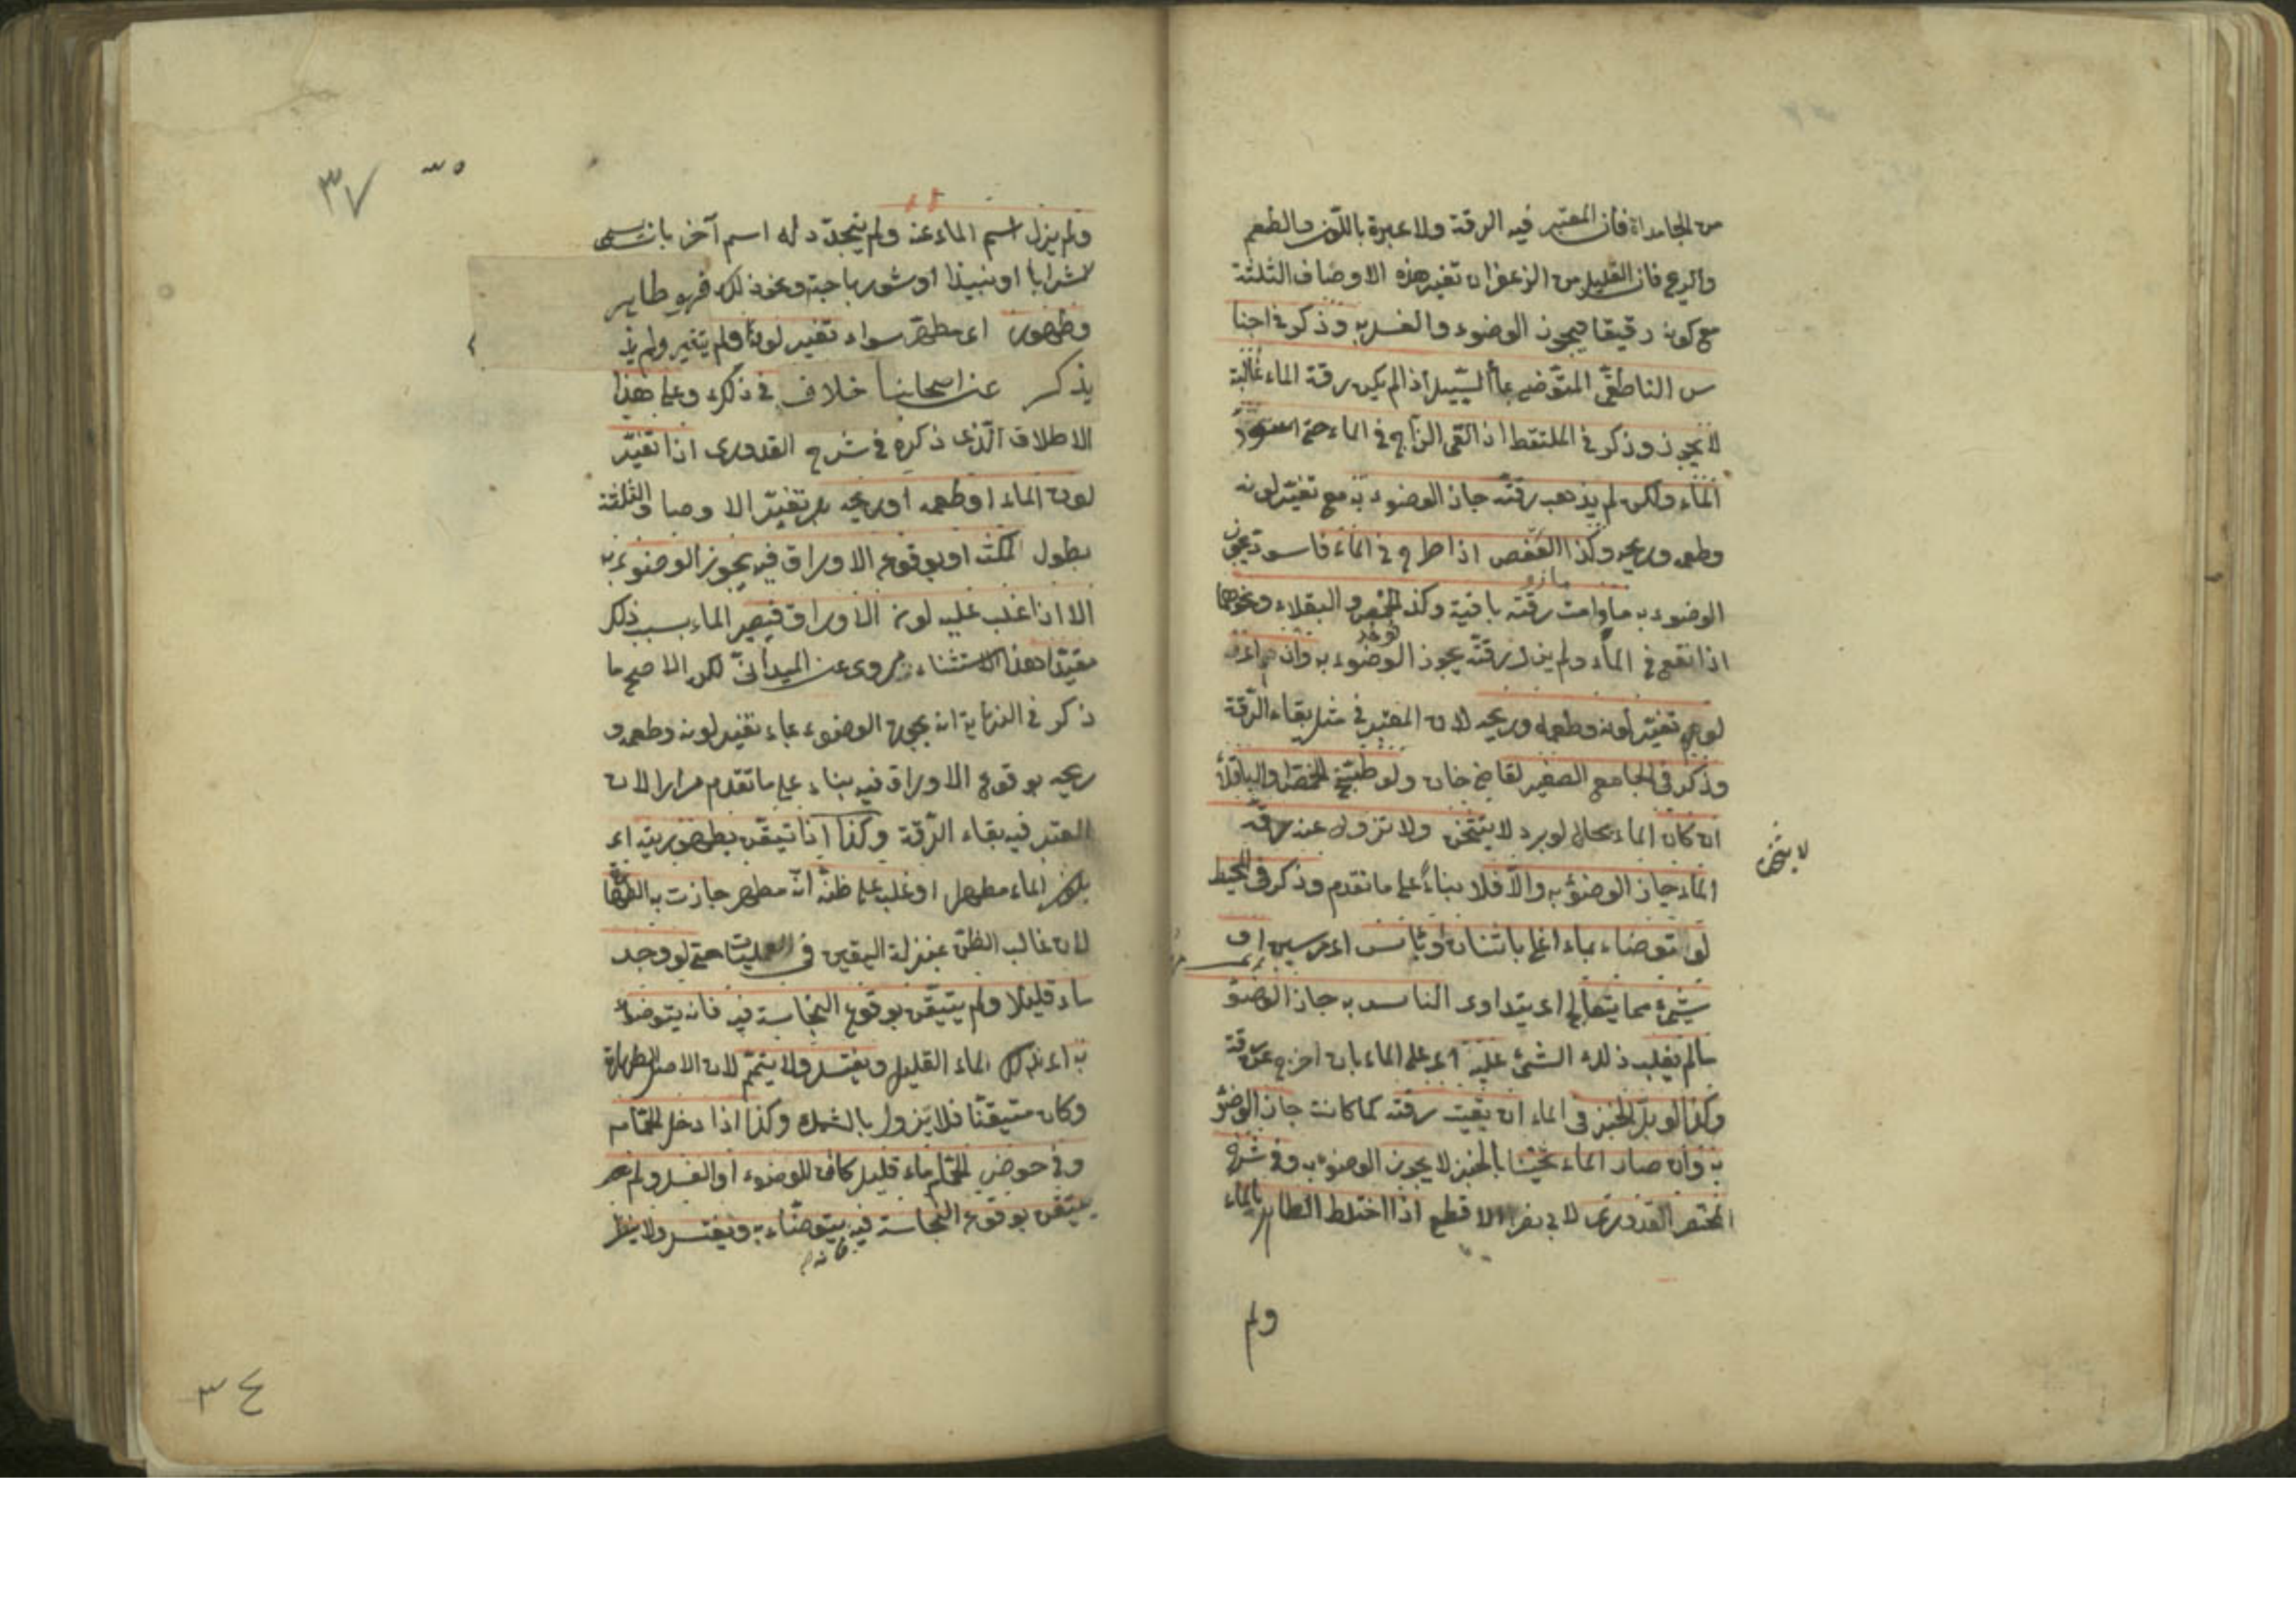 من الجامداة فان المعتبر فيه الرقة ولا عبرة باللون والطعم
والريح فان القليل من الزعفران تغير هذه الاوصاف الثلثة
مع كونه رقيقا فيجوز الوضوء والغسل به وذكر في اجنا
س الناطفي المتوضي بماء السيل اذا لم يكن رقة الماء غالبة
لا يجوز وذكر في الملتقط اذا القى الزاج في الماء حتى اسود
الماء ولكن لم يذهب رقته جاز الوضوء به مع تغير لونه
وطعمه وريحه وكذا العفص اذا طرح في الماء فاسود يجوز
مازو
الوضوء به ما دامت رقته باقية وكذا الحمص والبقلاء ونحوهما
اذا نقع في الماء ولم يزل رقته يجوز الوضوء به وان
نوخد
لونه تغير لونه وطعمه وريحه لان المعتبر في مثله بقاء الرقة
وذكر في الجامع الصغير لقاضي خان ولو طبخ الحمص او الباقلاء
ان كان الماء بحال لو برد لا يثخن ولا تزول عنه رقة
لا يثخن
الماء جاز الوضوء به والا فلا بناء على ما تقدم وذكر في المحيط
لو توضاء بماء اغلي باشنان او بآس اى مرسين او
شيء مما يتعالج اى يتداوى الناس به جاز الوضو
ما لم يغلب ذلك الشئ عليه اى على الماء بان اخرج عن رقته
وكذا لو بل الخبز في الماء ان بقيت رقته كما كانت جاز الوضو
به وان صار الماء ثخينا بالخبز لا يجوز الوضوء به وفي شرح
المختصر القدوري لابي نصر الاقطع اذا اختلط الطاهر بالماء
ولم
٣٧
ولم يزل اسم الماء عنه ولم يتجدد له اسم آخر بان يسمى
شرابا او نبيذا او شورباجة ونحو ذلك فهو طاهر
وطهور اى مطهر سواء تغير لونه او لم يتغير ولم يذ
يذكر عن اصحابنا خلاف في ذلك وعلى هذا
الاطلاق الذى ذكره في شرح القدورى اذا تغير
لون الماء او طعمه او ريحه بل تغير الاوصاف الثلثة
بطول المكث او بوقوع الاوراق فيه يجوز الوضوء به
الا اذا غلب عليه لون الاوراق فيصير الماء بسبب ذلك
مقيدا هذا الاستثناء مروى عن الميداني لكن الاصح ما
ذكر في النهاية انه يجوز الوضوء بماء تغير لونه وطعمه و
ريحه بوقوع الاوراق فيه بناء على ما تقدم مرارا لان
المعتبر فيه بقاء الرقة وكذا اذا تيقن بطهوريته اى
بكون الماء مطهرا او غلب على ظنه انه مطهر جازت به الطها
لان غالب الظن بمنزلة اليقين في العمليات حتى لو وجد
ماء قليلا ولم يتيقن بوقوع النجاسة فيه فانه يتوضأ
به اى بذلك الماء القليل ويغتسل ولا يتيمم لان الاصل الطهارة
وكان متيقنا فلا يزول بالشك وكذا اذا دخل الحمام
وفي حوض الحمام ماء قليل كاف للوضوء او الغسل ولم
يتيقن بوقوع النجاسة فيه يتوضاء به ويغتسل ولا ينتظر
فانه
٣٤